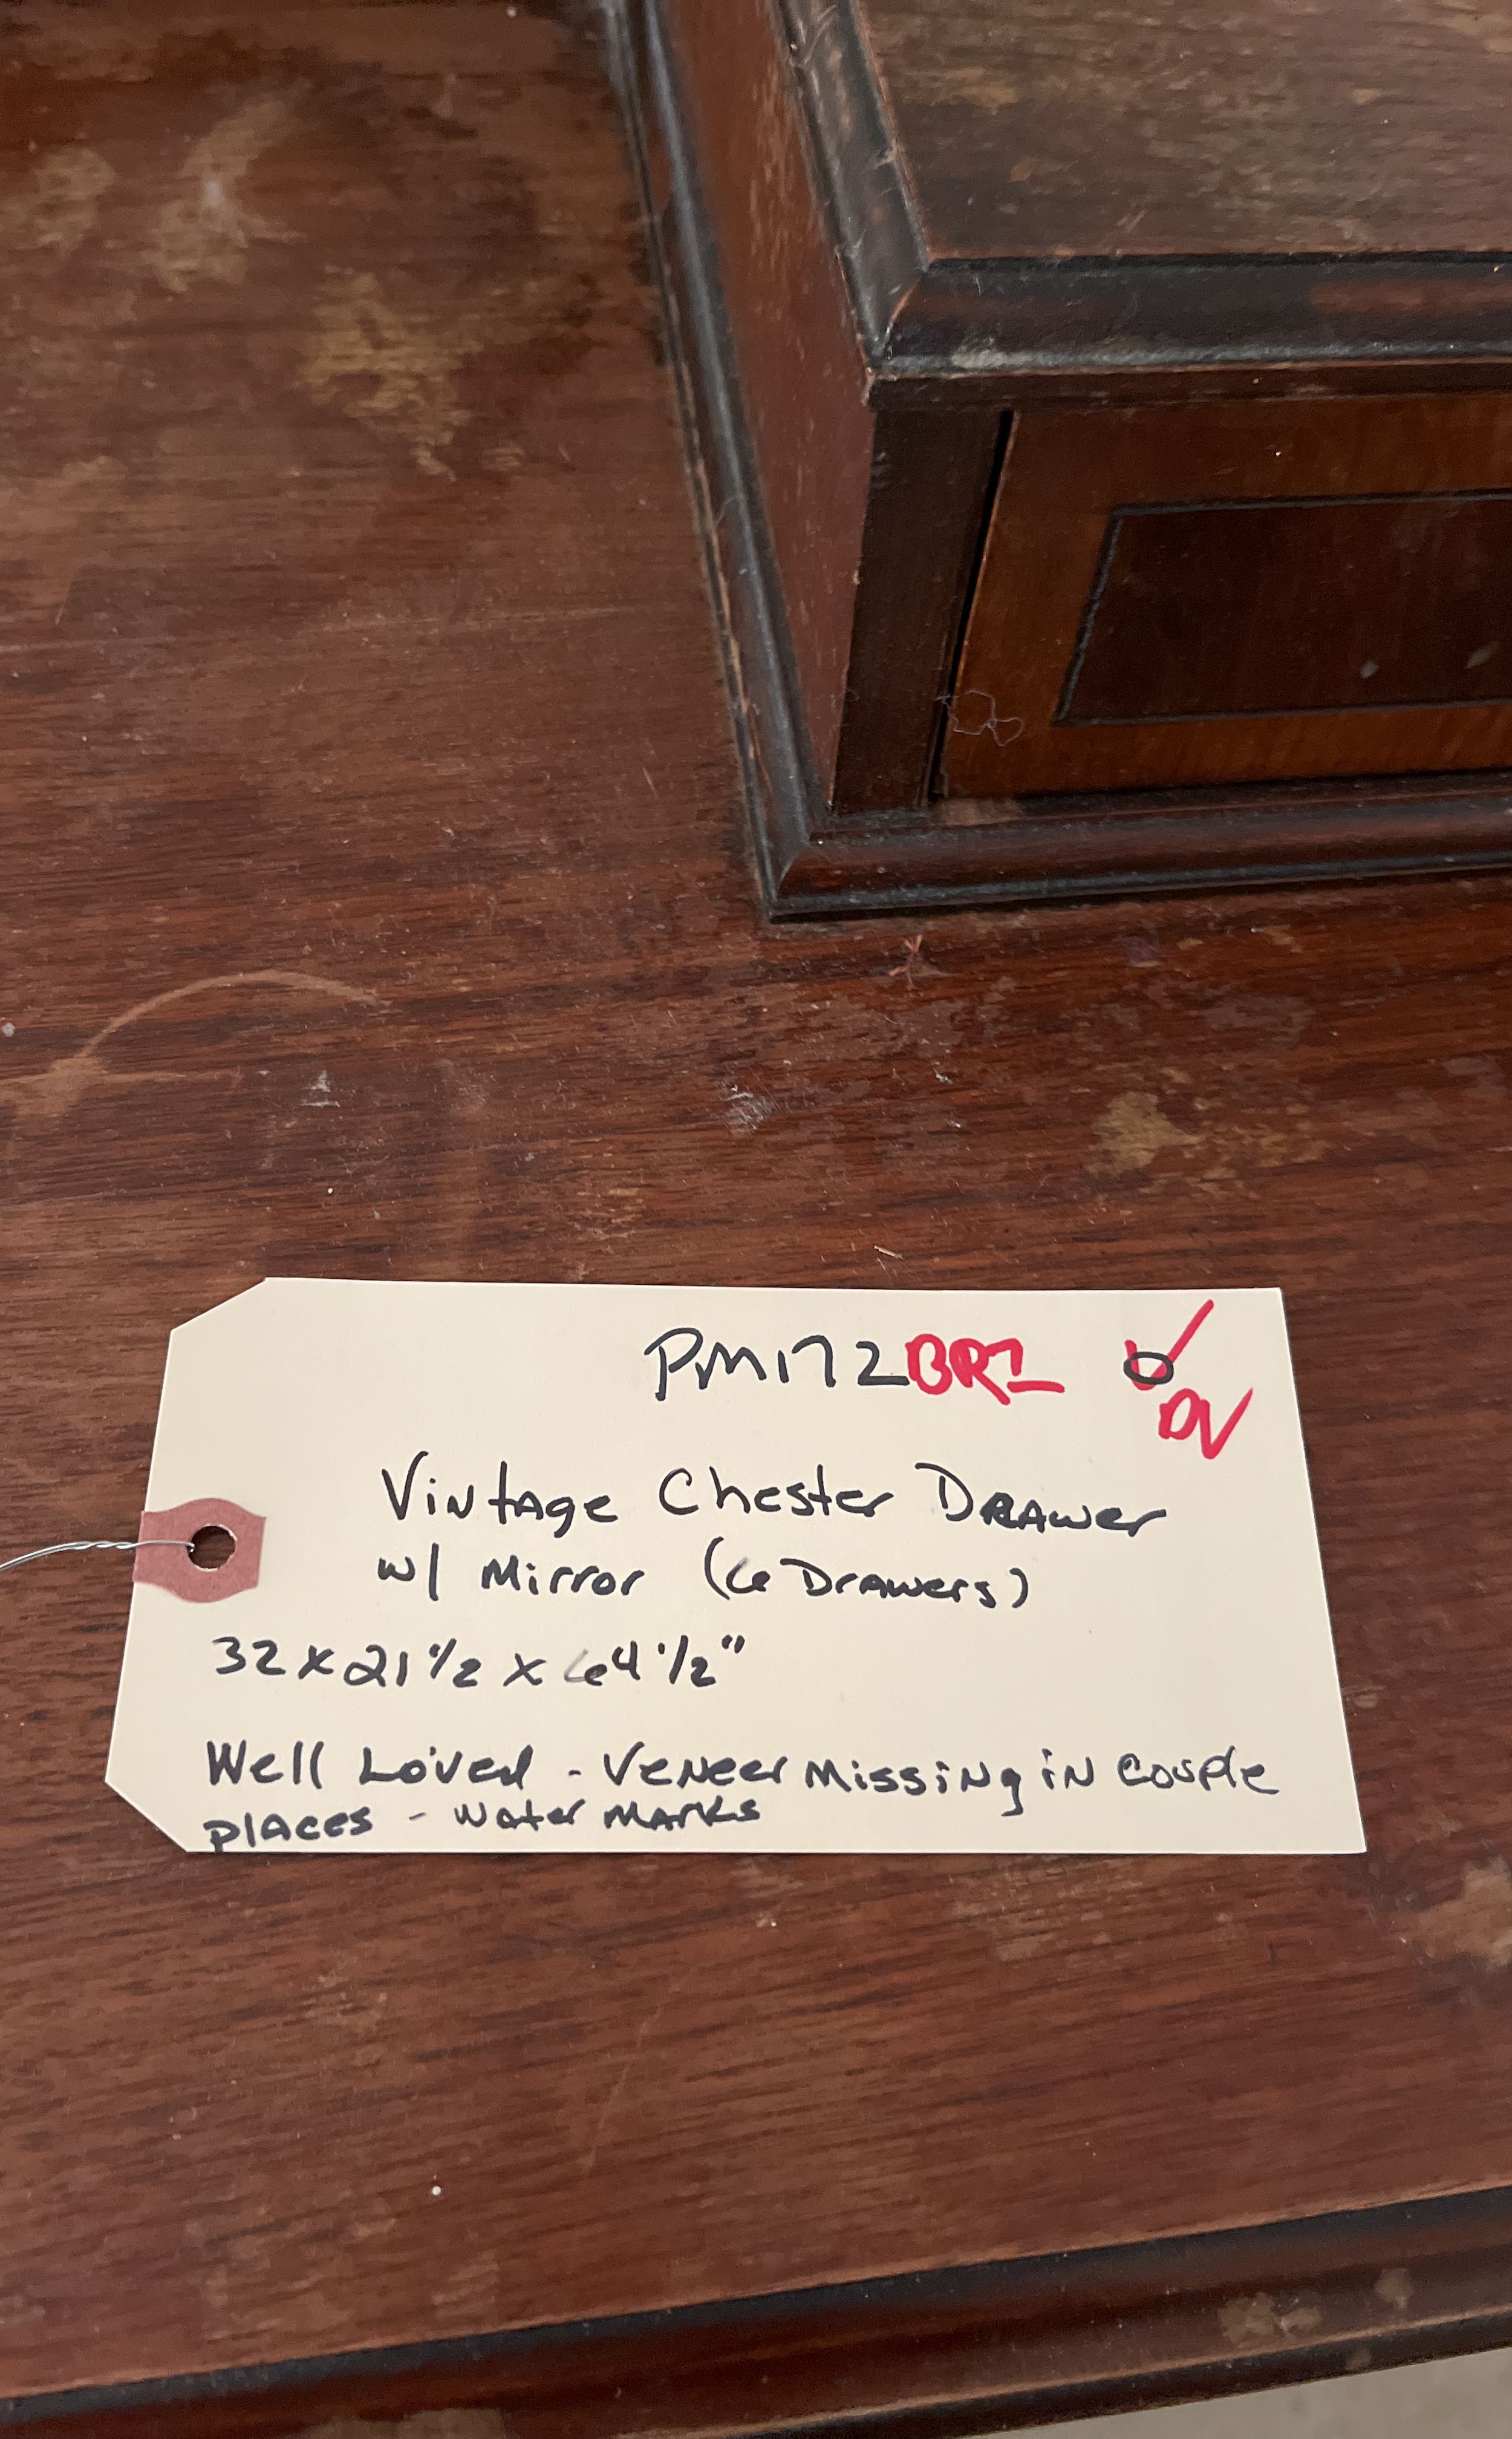 PM172BR1
DV
Vintage Chester Drawer
w/ Mirror (6 Drawers)
32 x 21 1/2 x 64 1/2"
Well Loved - Veneer Missing in Couple
places - Water Marks